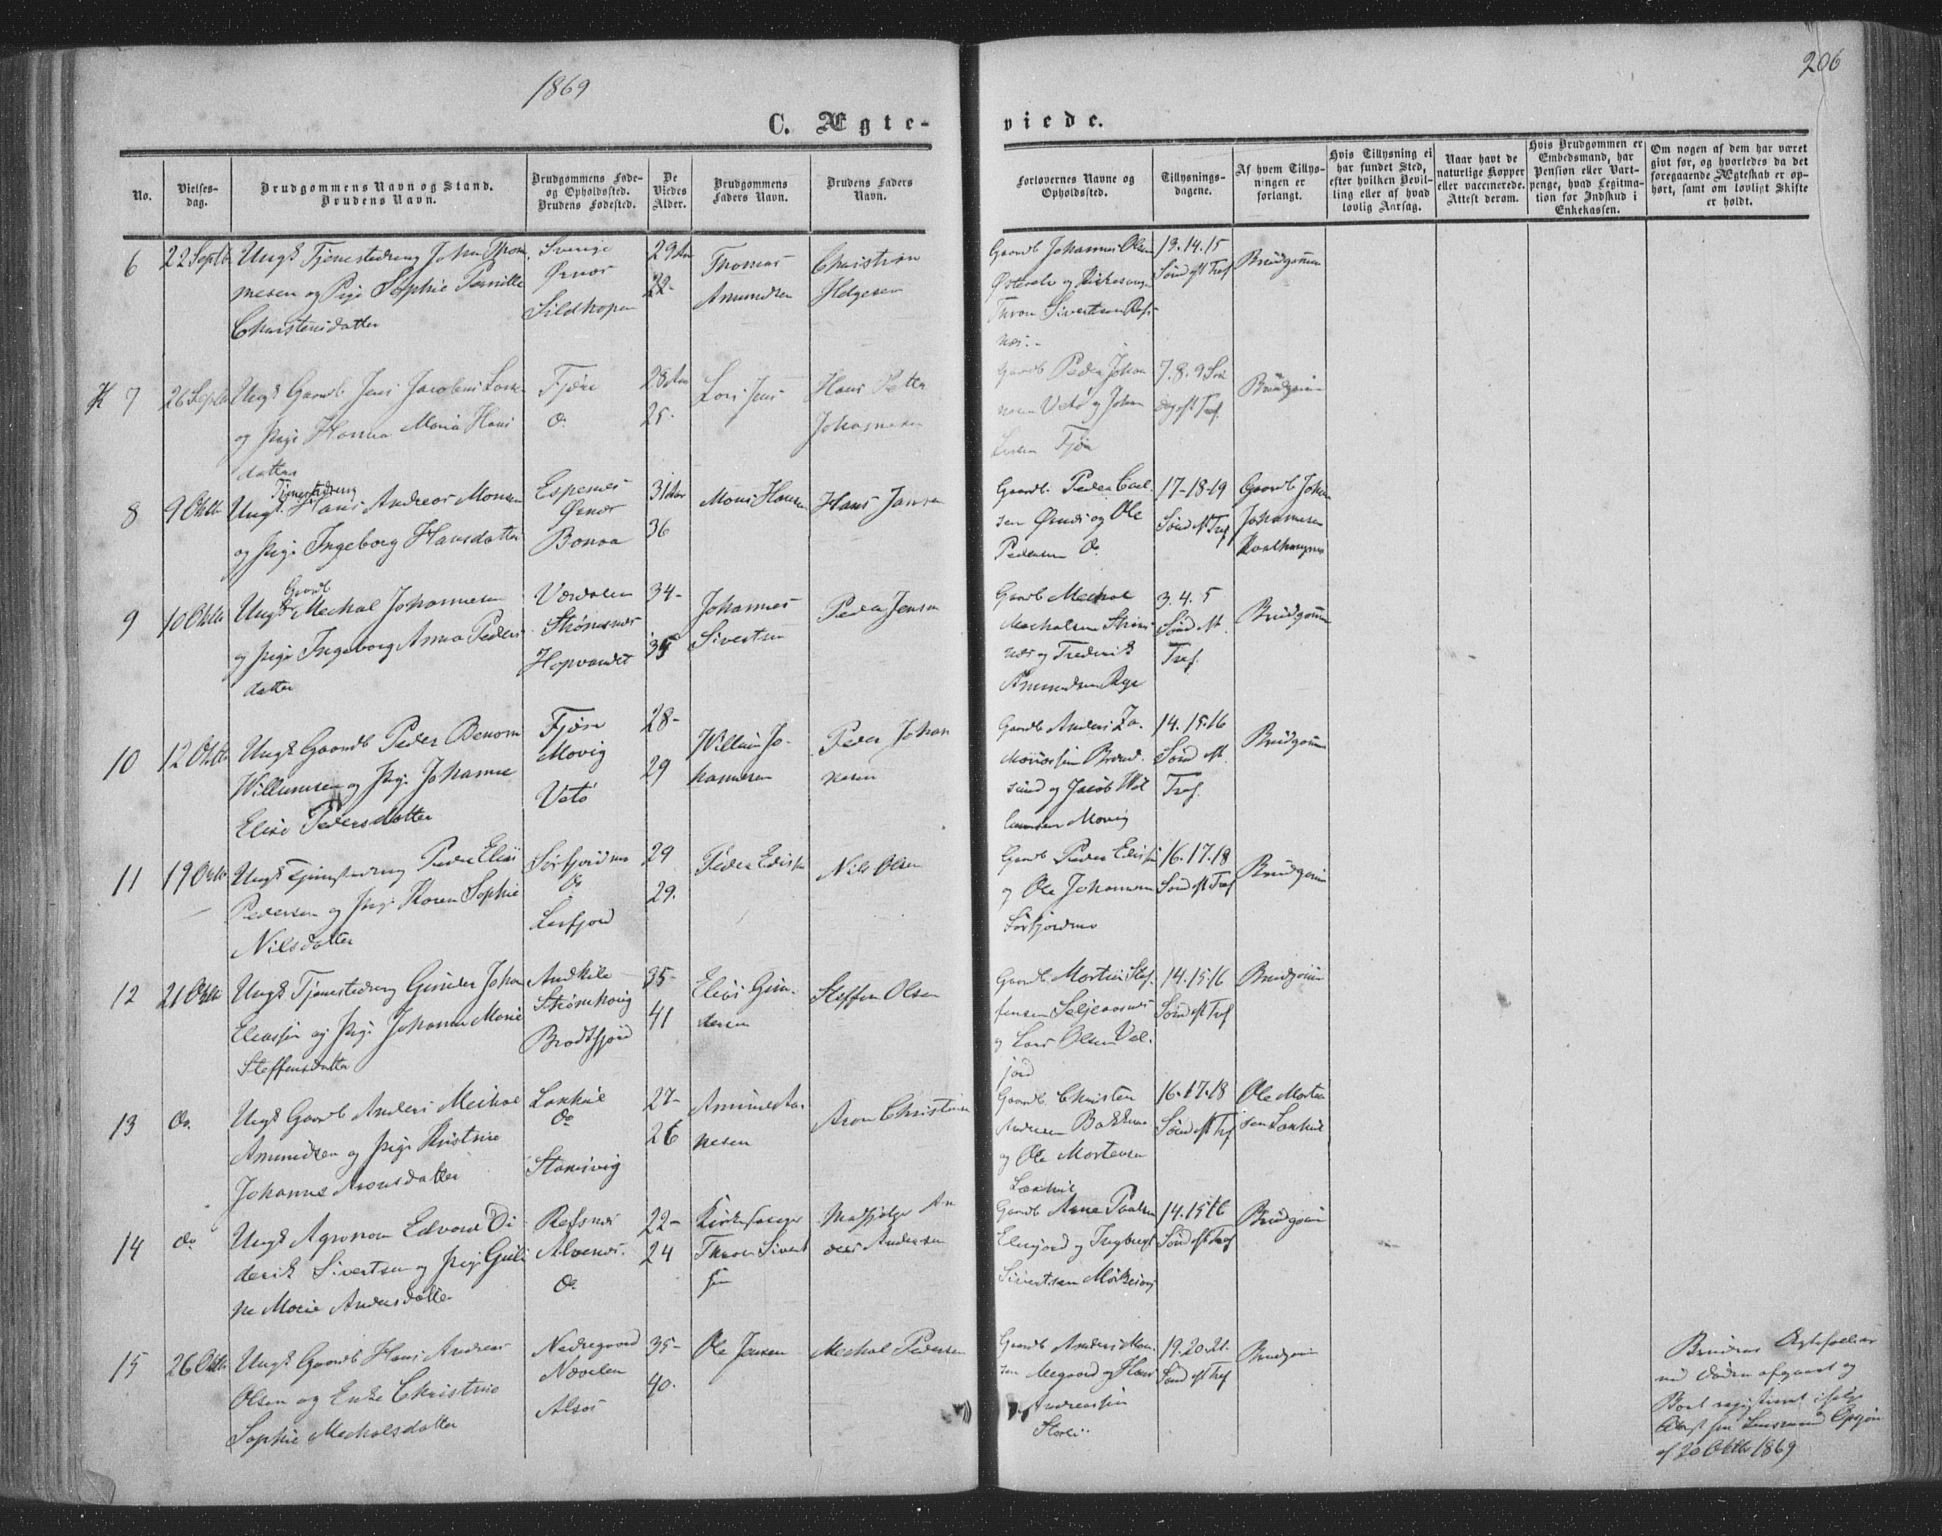 1869
206
C. Ægte-
viede.
No.
Vielses-
dag.
Brudgommens Navn og Stand.
Brudens Navn.
Brudgommens Føde-
og Opholdssted.
Brudens Fødested.
De
Viedes
Alder.
Brudgommens
Faders Navn.
Brudens Faders
Navn.
Forlovernes Navne og
Opholdssted.
Tillysnings-
dagene.
Af hvem Tillys-
ningen er
forlangt.
Hvis Tillysning ei
har fundet Sted,
efter hvilken Bevil-
ling eller af hvad
lovlig Aarsag.
Naar havt de
naturlige Kopper
eller vaccinerede.
Attest derom.
Hvis Brudgommen er
Embedsmand, har
Pension eller Vart-
penge, hvad Legitima-
tion for Indskud i
Enkekassen.
Om nogen af dem har været
gift før, og hvorledes da det
foregaaende Ægteskab er op-
hørt, samt om lovligt Skifte
er holdt.
6
22 Septb
Ungk Tjenestedreng John Thom
mesen og Pige Sophie Pernille
Christensdatter
Sverige
Ørnes
Sildhopen
29 Aar
22-
Thomas
Amundsen
Christian
Helgesen
Gaardb Johannes Olsen
og Kirkesanger
Thron Sivertsen Refs-
nes.
13. 14. 15
Sønd eft Tref
Brudgommen
K 7
26 Septb
Ungk Gaardb Jens Jacobus Larsen
og Pige Hanna Maria Hans
datter
Fjøre
do
28 Aar
25-
Lars Jens
Hans Petter
Johannesen
Gaardb Peder Johan
nesen Vetø og Johan
Larsen Fjøre
7. 8. 9 Søn
dag eft Tref.
Brudgom
8
9 Oktb
Tjenestedreng
Ungk. Hans Andreas Monsen
og Pige Ingeborg Hansdatter
Espenes
Ørnes
Bonaa
31 Aar
36
Mons Hansen
Hans Jansen
Gaardb. Peder Carl-
sen Ørnes og Ole
Pedersen do.
17-18-19
Sønd eft Tref
Gaardb Johan
Johannesen
9
10 Oktb
Gaardb
Ungk Mechal Johannesen
og Pige Ingeborg Anna Peders
datter
Værdalen
Strømsnes
Hopvandet
34-
35
Johannes
Sivertsen
Peder Jensen
Gaardb Mechal
Mechalsen Strøms
nes og Frederik
Amundsen
3. 4. 5
Sønd eft.
Tref.
Brudgommen
10
12 Oktb
Ungk Gaardb Peder Benoni
Willumsen og Pige Johanna
Elise Pedersdatter
Fjøre
Movig
Vetø
28-
29
Willum Jo-
hannesen
Peder Johan
nesen
Gaardb Anders Za-
Brend-
sund og Jacob Wil
lumsen Movig
14. 15. 16
Sønd eft.
Tref.
Brudgommen
11
19 Oktb
Ungk Tjenestedreng Peder Elias
Pedersen og Pige Karen Sophie
Nilsdatter
Sørfjordmo
do
Leirfjord
29
29.
Peder Edissen
Nils Olsen
Gaardb Peder Edissen
og Ole Johannesen
Sørfjordmo
16. 17. 18
Sønd eft Tref
Brudgom
12
21 Oktb
Ungk Tjenestedreng Gunder Johan
Eliassen og Pige Johanna Marie
Steffensdatter
Andkile
Strømhoug
Brodtfjord
35-
41
Elias Gun-
dersen
Steffen Olsen
Gaardb Morten Stef-
fensen Seljeaasnes
og Lars Olsen Val-
jord
14. 15. 16
Sønd eft Tref
Brudgom
13
do.
Ungk Gaardb Anders Meihal
Amundsen og Pige Kristine
Johanne Aronsdatter
Laxhul
do
Stamsvig
27-
26
Amund Aa-
nesen
Aron Christensen
Gaardb. Christen
Andersen Bakken
og Ole Mortensen
Laxhul
16. 17. 18
Sønd eft Tref
Ole Morten
sen Laxhul
14
do
Ungk Agronom Edvard Di
derik Sivertsen og Pige Guli
ne Marie Andersdatter
Refsnes
Alvenes.
do
22-
24
Kirkesanger
Thron Sivert
sen
ders Andersen
Gaardb Arne Paulsen
Elvegjord og Ingbrigt
Sivertsen
14. 15. 16
Sønd eft Tref
Brudgom
15
26 Oktb
Ungk Gaardb Hans Andreas
Olsen og Enke Christine
Sophie Mechalsdatter
Nedregaard
Nævelen
Alsos
35-
40.
Ole Jensen
Mechal Pedersen
Gaardb Anders Mon-
sen og Hans
Andreassen
Storli
19. 20. 21.
Sønd eft Tref
Brudgom
Brudens Ægtefælle er
ved Døden afgaaet og
Boet registreret ifølge
Attest fra Lensmand
af 20 Oktb 1869